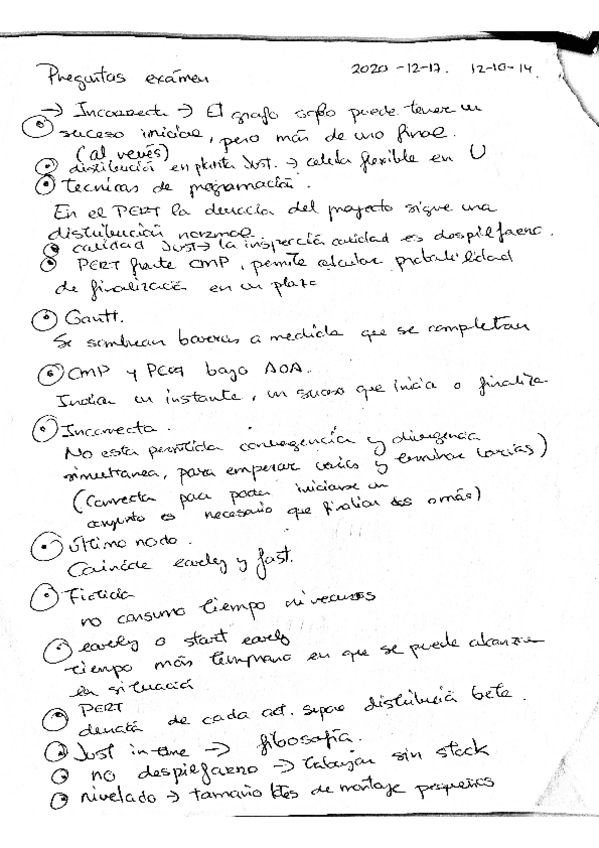 Preguntas exámen 2020-12-17. 12-10-14
→ Incorrecta → El grafo solo puede tener un
suceso inicial, pero más de uno final.
(al revés)
distribución en planta Just. → celula flexible en U
tecnicas de programación.
En el PERT la duración del proyecto sigue una
distribución normal.
calidad Just → la inspección calidad es despilfarro.
PERT frente CMP, permite calcular probabilidad
de finalización en un plazo
Gantt.
Se sombrean barras a medida que se completan
CMP y PERT bajo AOA.
Indica un instante, un suceso que inicia o finaliza
Incorrecta.
No esta permitida convergencia y divergencia
simultanea, para empezar varias y terminar varias)
(Correcta para poder iniciarse un
conjunto es necesario que finalicen dos o más)
Último nodo.
Coincide early y last.
Ficticia
no consume tiempo ni recursos
early o start early
tiempo más temprano en que se puede alcanzar
la situación
PERT
duración de cada act. sigue distribución beta.
Just in time → filosofía.
no despilfarro → trabajar sin stock
nivelado → tamaño lotes de montaje pequeños